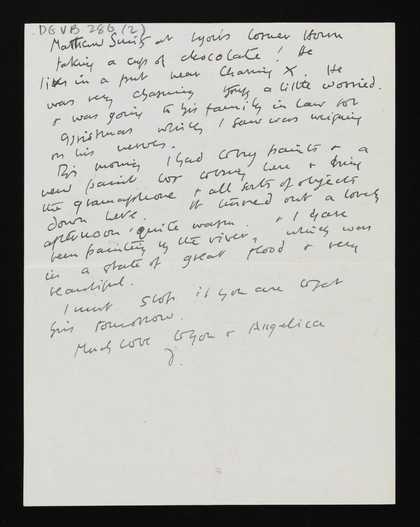 DGVB 286 (2)
Matthew Smith at Lyons Corner House
taking a cup of chocolate! He
lives in a pub near Charing X. He
was very charming tho' a little worried.
& was going to his family in law for
Christmas which I saw was weighing
on his nerves.
This morning I had to buy paints & a
new paint box coming here & bring
the gramaphone & all sorts of objects
down here. It turned out a lovely
afternoon, quite warm. & I have
been painting by the river, which was
in a state of great flood & very
beautiful.
I must stop if you are to get
this tomorrow.
Much love to you & Angelica